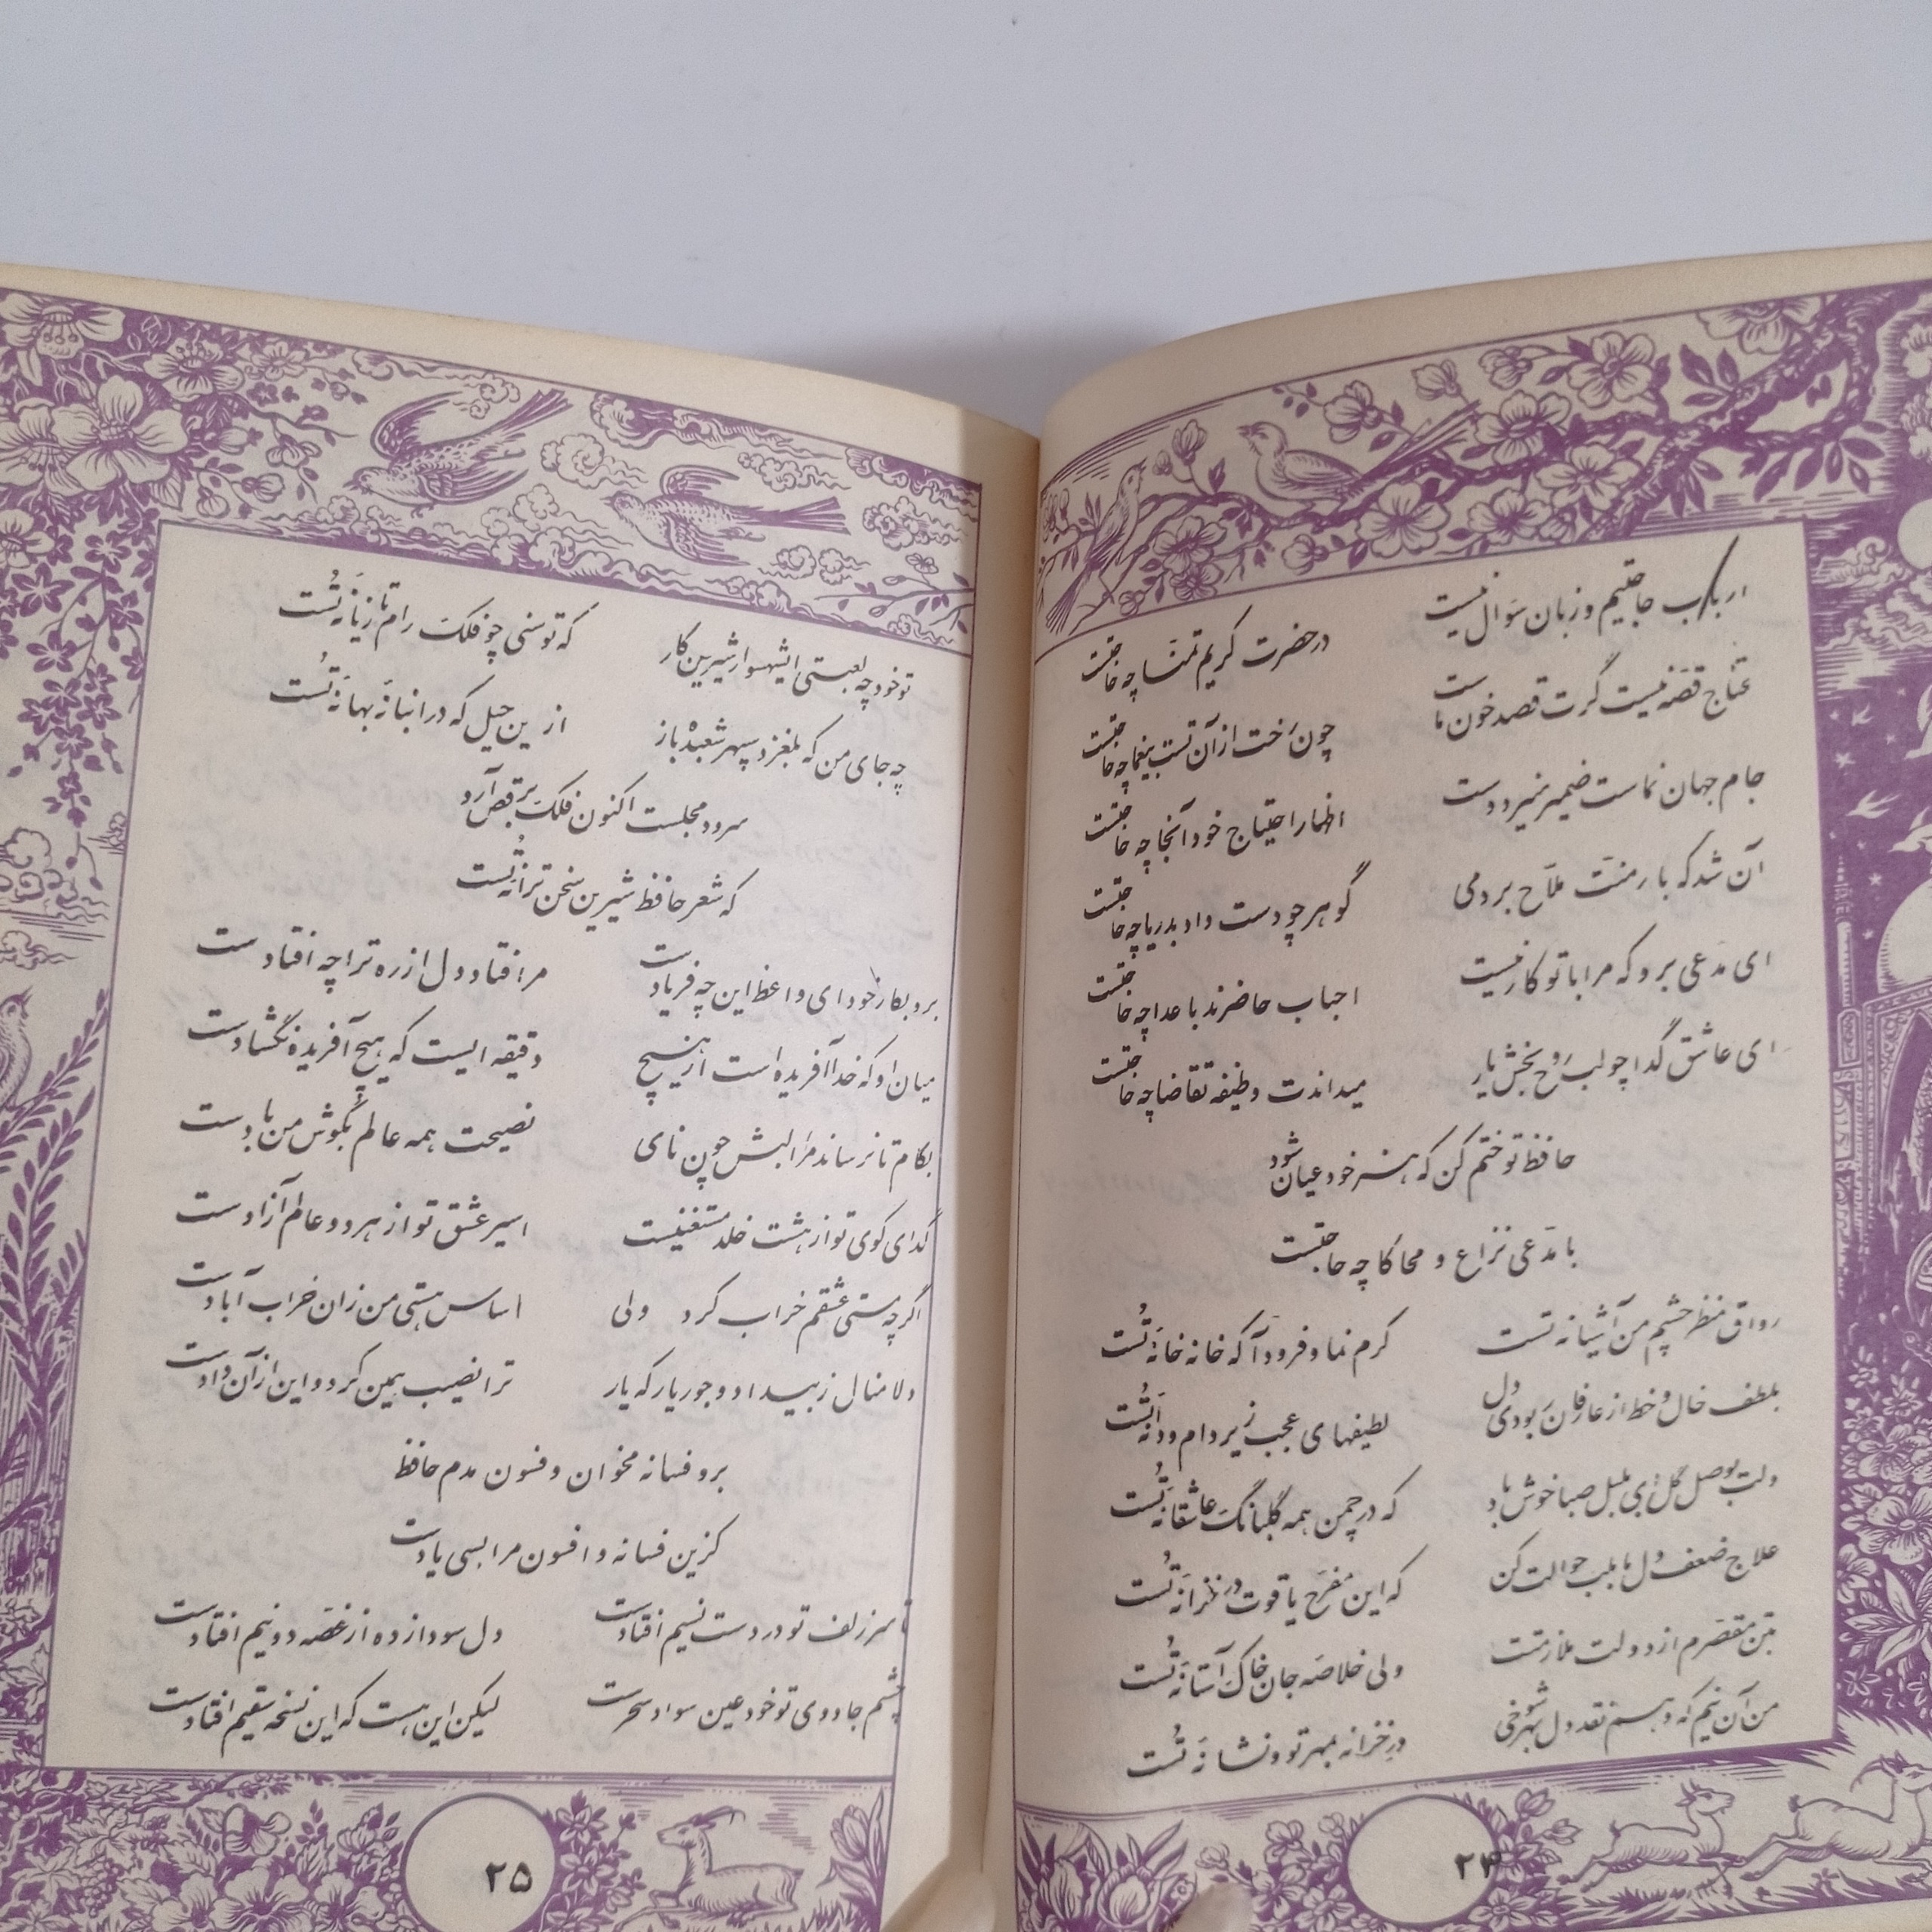 ارباب حاجتیم و زبان سؤال نیست	در حضرت کریم تمنّا چه حاجتست
محتاج قصّه نیست گرت قصد خون ماست	چون رخت از آن تست بیغما چه حاجتست
جام جهان نماست ضمیر منیر دوست	اظهار احتیاج خود آنجا چه حاجتست
آن شد که بار منّت ملّاح بردمی	گوهر چو دست داد بدریا چه حاجتست
ای مدّعی برو که مرا با تو کار نیست	احباب حاضرند باعدا چه حاجتست
ای عاشق گدا چو لب روح بخش یار	میداندت وظیفه تقاضا چه حاجتست
حافظ تو ختم کن که هنر خود عیان شود
با مدّعی نزاع و محاکا چه حاجتست
رواق منظر چشم من آشیانه تست	کرم نما و فرود آ که خانه خانهٔ تُست
بلطف خال و خط از عارفان ربودی دل	لطیفهای عجب زیر دام و دانهٔ تُست
دلت بوصل گل ای بلبل صبا خوش باد	که در چمن همه گلبانگ عاشقانهٔ تُست
علاج ضعف دل ما بلب حوالت کن	که این مفرّح یاقوت در خزانهٔ تُست
بتن مقصّرم از دولت ملازمتت	ولی خلاصه جان خاک آستانهٔ تُست
من آن نیم که دهم نقد دل بهر شوخی	در خزانه بمهر تو و نشانهٔ تُست
۲۴
تو خود چه لعبتی ای شهسوار شیرین کار	که توسنی چو فلک رام تازیانهٔ تُست
چه جای من که بلغزد سپهر شعبده باز	از ین حیل که در انبانهٔ بهانهٔ تُست
سرود مجلست اکنون فلک برقص آرد
که شعر حافظ شیرین سخن ترانهٔ تُست
برو بکار خود ای واعظ این چه فریادست	مرا فتاد دل از ره ترا چه افتادست
میان او که خدا آفریده است از هیچ	دقیقه ایست که هیچ آفریده نگشادست
بکام تا نرساند مرا لبش چون نای	نصیحت همه عالم بگوش من بادست
گدای کوی تو از هشت خلد مستغنیست	اسیر عشق تو از هر دو عالم آزادست
اگر چه مستی عشقم خراب کرد ولی	اساس هستی من زان خراب آبادست
دلا منال ز بیداد و جور یار که یار	ترا نصیب همین کرد و این از آن دادست
برو فسانه مخوان و فسون مدم حافظ
کزین فسانه و افسون مرا بسی یادست
تا سر زلف تو در دست نسیم افتادست	دل سودازده از غصّه دو نیم افتادست
چشم جادوی تو خود عین سواد سحرست	لیکن این هست که این نسخه سقیم افتادست
۲۵